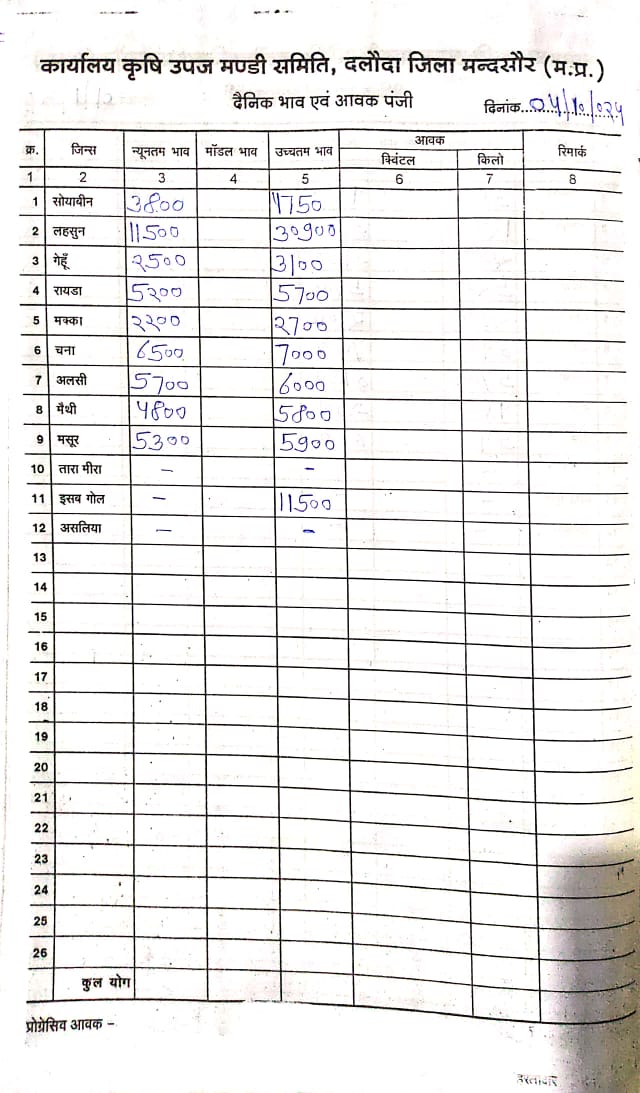 कार्यालय कृषि उपज मण्डी समिति, दलौदा जिला मन्दसौर (म.प्र.)
दैनिक भाव एवं आवक पंजी
दिनांक...04/10/024
क्र. जिन्स न्यूनतम भाव मॉडल भाव उच्चतम भाव आवक रिमार्क
क्विंटल किलो
1 2 3 4 5 6 7 8
1 सोयाबीन 3800 4750
2 लहसुन 11500 30900
3 गेहूँ २500 3100
4 रायडा 5२00 5700
5 मक्का २२00 २700
6 चना 6500 7000
7 अलसी 5700 6000
8 मैथी 4800 5800
9 मसूर 5300 5900
10 तारा मीरा – –
11 इसब गोल – 11500
12 असलिया – –
13
14
15
16
17
18
19
20
21
22
23
24
25
26
कुल योग
प्रोग्रेसिव आवक –
हस्ताक्षर